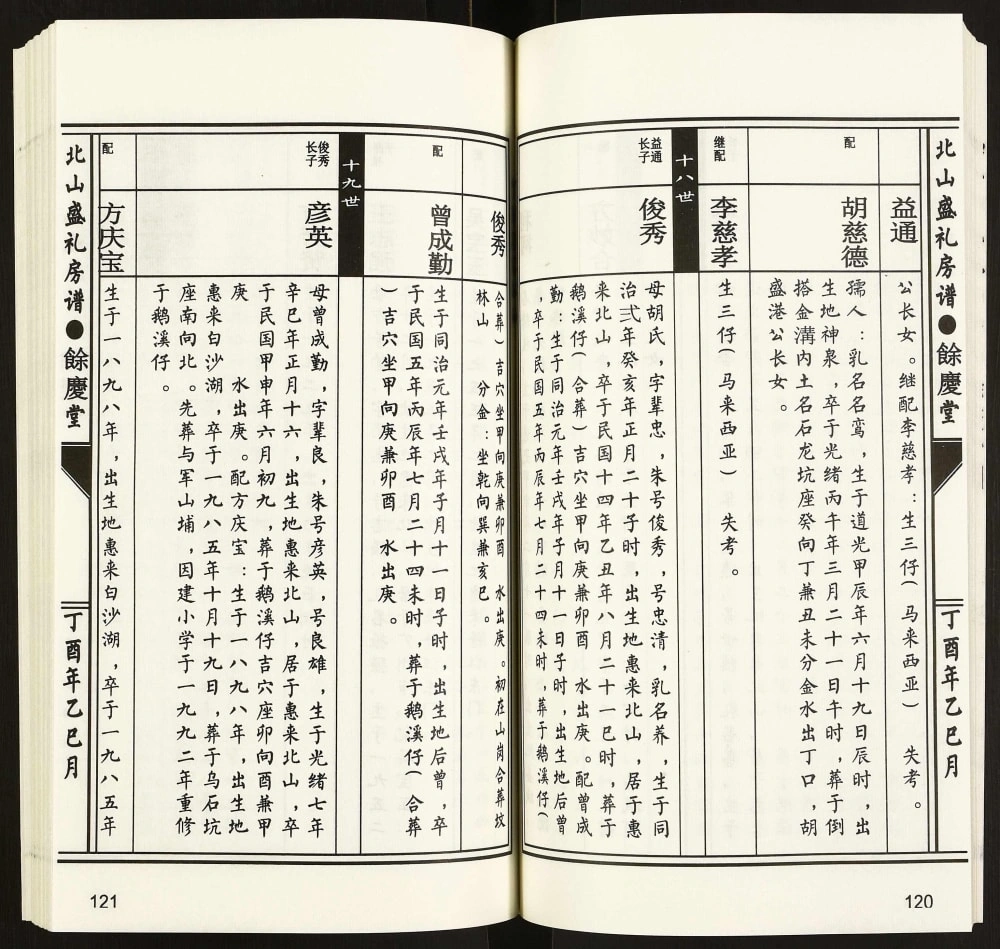 北山盛礼房谱●餘慶堂
丁酉年乙巳月
120
益通
公长女。继配李慈孝：生三仔（马来西亚） 失考。
配
胡慈德
孺人：乳名名鸾，生于道光甲辰年六月十九日辰时，出
生地神泉，卒于光绪丙午年三月二十一日午时，葬于倒
搭金溝内土名石龙坑座癸向丁兼丑未分金水出丁口，胡
盛港公长女。
继配
李慈孝
生三仔（马来西亚） 失考。
十八世
益通
长子
俊秀
母胡氏，字辈忠，朱号俊秀，号忠清，乳名养，生于同
治弍年癸亥年正月二十子时，出生地惠来北山，居于惠
来北山，卒于民国十四年乙丑年八月二十一巳时，葬于
鹅溪仔（合葬）吉穴坐甲向庚兼卯酉 水出庚。配曾成
勤：生于同治元年壬戌年子月十一日子时，出生地后曾
，卒于民国五年丙辰年七月二十四未时，葬于鹅溪仔（
俊秀
合葬）吉穴坐甲向庚兼卯酉 水出庚。初在山岗合葬坟
林山 分金：坐乾向巽兼亥巳。
配
曾成勤
生于同治元年壬戌年子月十一日子时，出生地后曾，卒
于民国五年丙辰年七月二十四未时，葬于鹅溪仔（合葬
）吉穴坐甲向庚兼卯酉 水出庚。
十九世
俊秀
长子
彦英
母曾成勤，字辈良，朱号彦英，号良雄，生于光绪七年
辛巳年正月十六，出生地惠来北山，居于惠来北山，卒
于民国甲申年六月初九，葬于鹅溪仔吉穴座卯向酉兼甲
庚 水出庚。配方庆宝：生于一八九八年，出生地
惠来白沙湖，卒于一九八五年十月十九日，葬于乌石坑
座南向北。先葬与军山埔，因建小学于一九九二年重修
于鹅溪仔。
配
方庆宝
生于一八九八年，出生地惠来白沙湖，卒于一九八五年
北山盛礼房谱●餘慶堂
丁酉年乙巳月
121